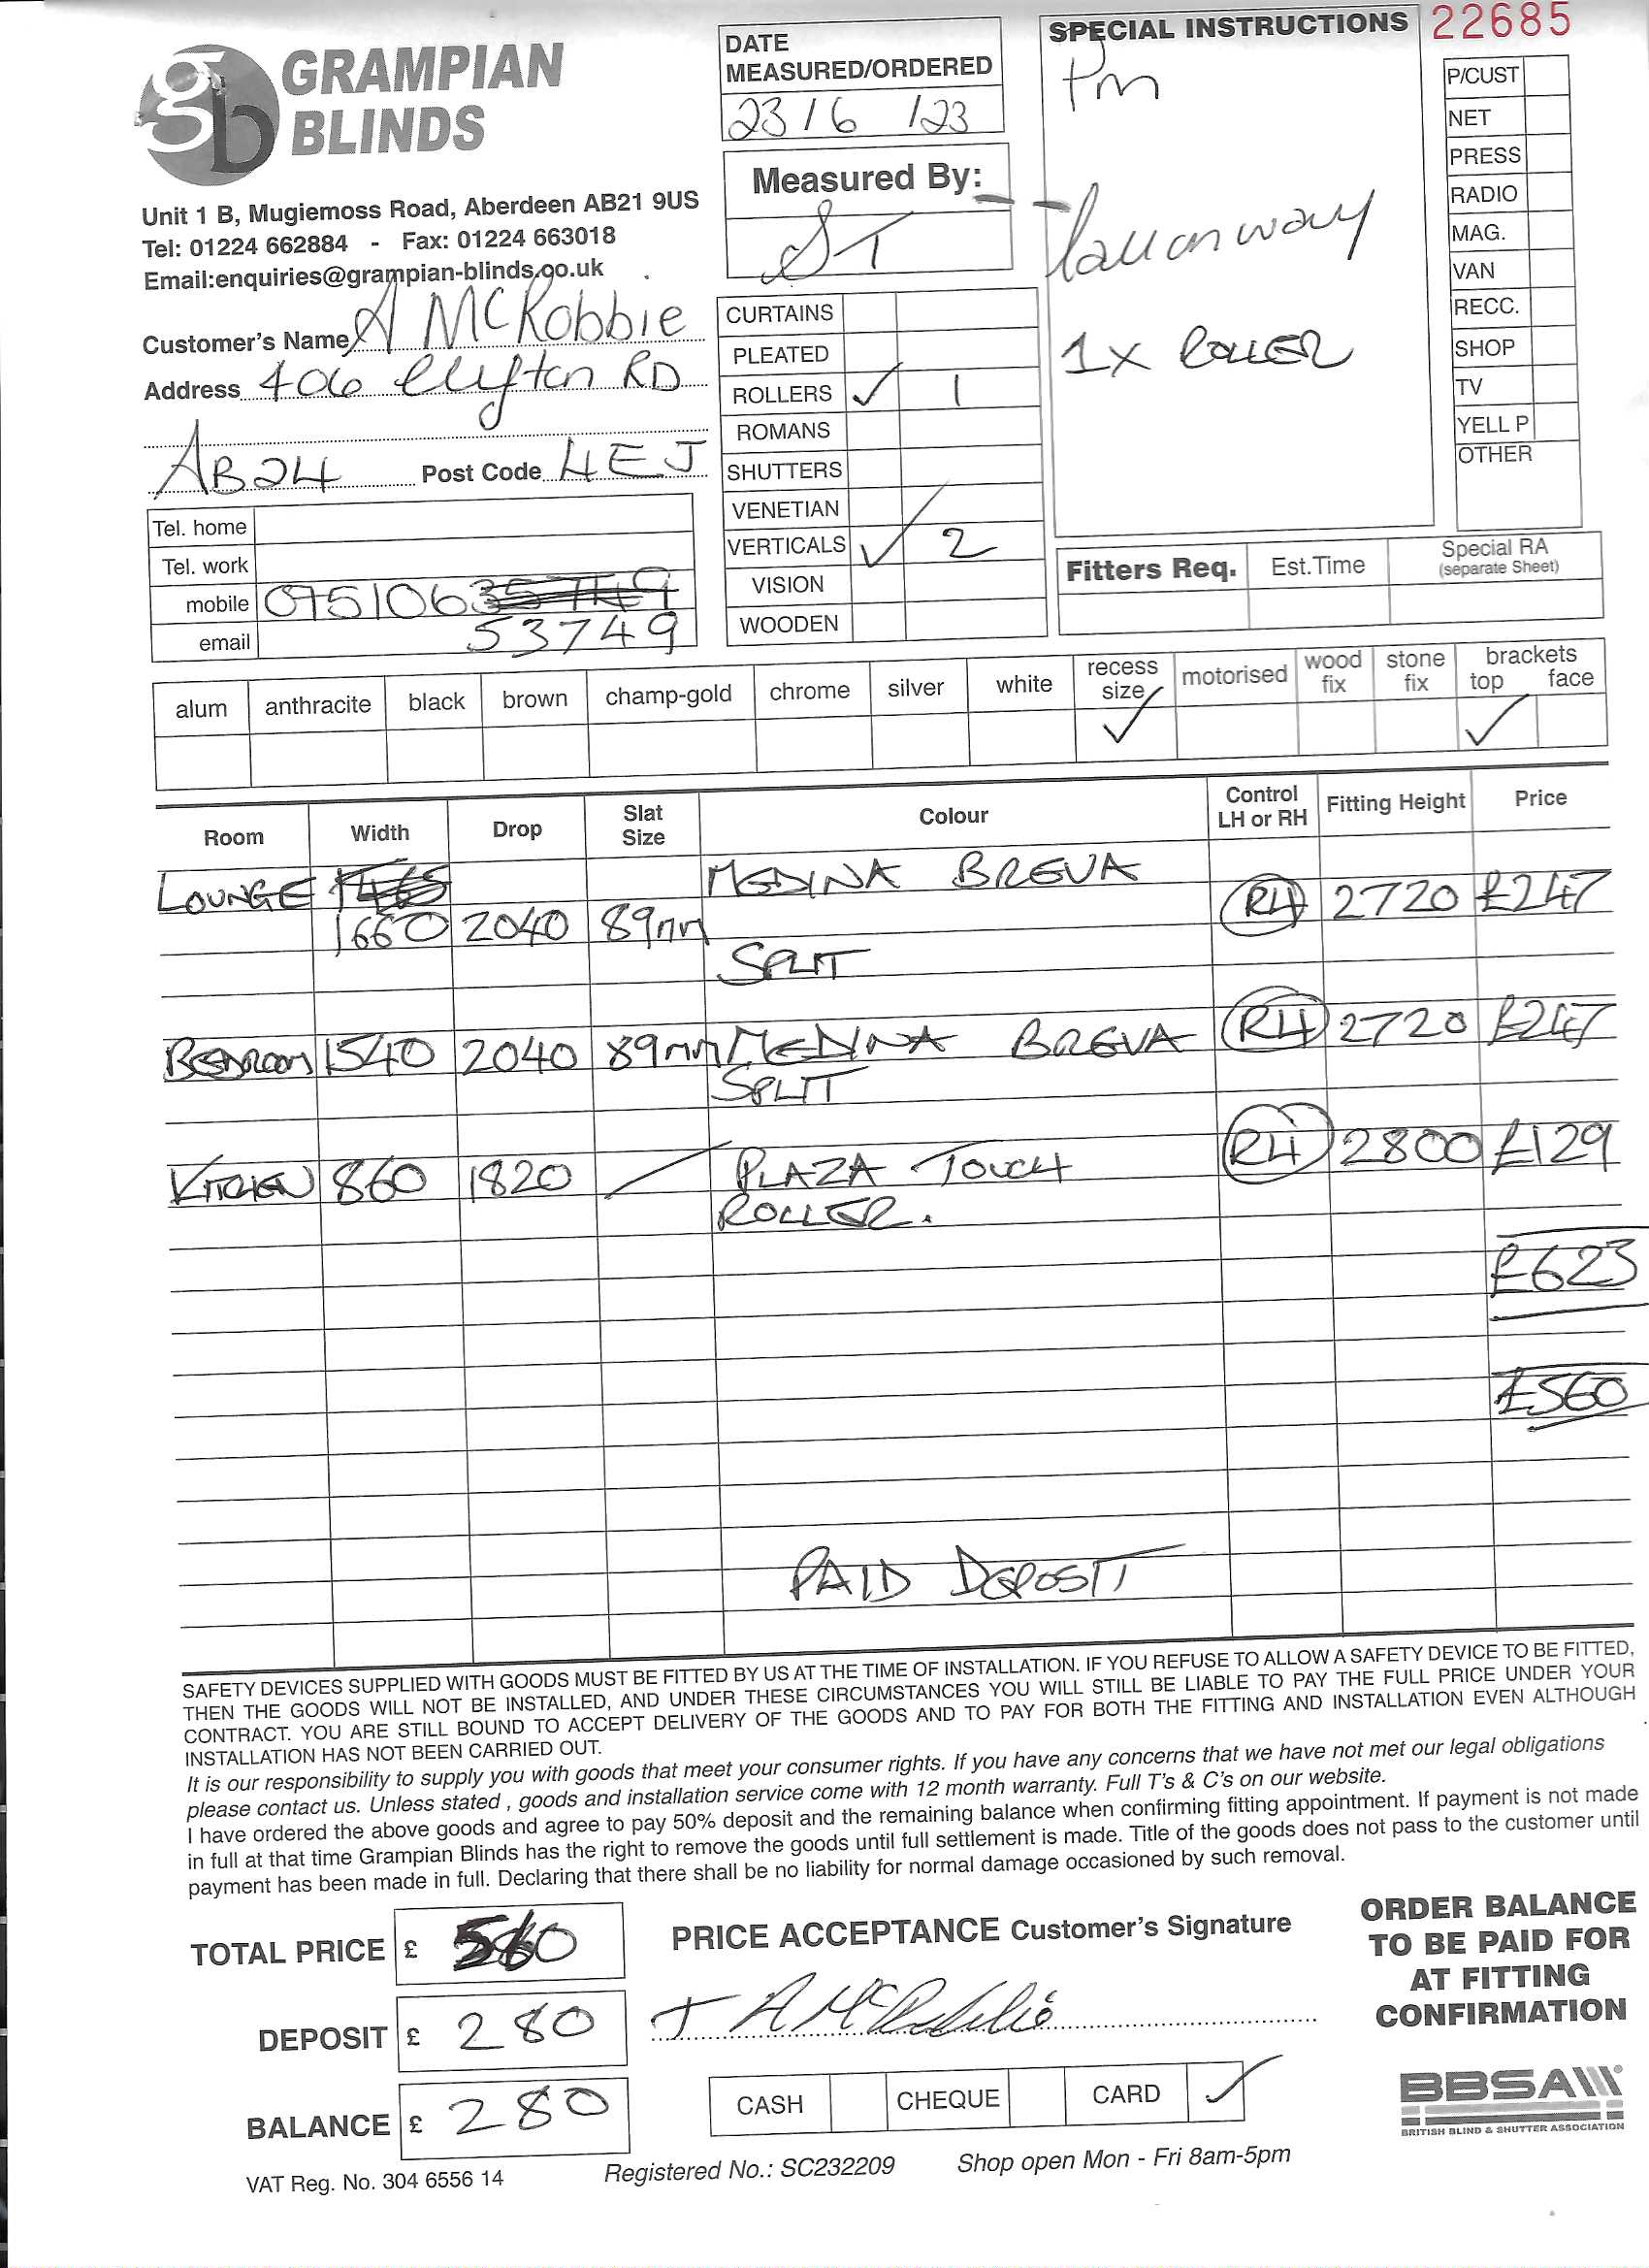 22685
GRAMPIAN
BLINDS
Unit 1 B, Mugiemoss Road, Aberdeen AB21 9US
Tel: 01224 662884 - Fax: 01224 663018
Email:enquiries@grampian-blinds.co.uk
Customer's Name A McRobbie
Address 406 Clifton RD
AB24 Post Code 4EJ
Tel. home
Tel. work
mobile 0751063
email 53749
DATE
MEASURED/ORDERED
23/6/23
Measured By:
ST
CURTAINS
PLEATED
ROLLERS ✓ 1
ROMANS
SHUTTERS
VENETIAN
VERTICALS ✓ 2
VISION
WOODEN
SPECIAL INSTRUCTIONS
Pm
1x ROLLER
P/CUST
NET
PRESS
RADIO
MAG.
VAN
RECC.
SHOP
TV
YELL P
OTHER
Fitters Req. Est.Time Special RA
(separate Sheet)
alum anthracite black brown champ-gold chrome silver white recess size ✓ motorised wood fix stone fix brackets top ✓ face
Room Width Drop Slat Size Colour Control LH or RH Fitting Height Price
LOUNGE 1660 2040 89mm MEDINA BREVA RH 2720 £247
SPLIT
BEDROOM 1540 2040 89mm MEDINA BREVA RH 2720 £247
SPLIT
KITCHEN 860 1820 PLAZA TOUCH RH 2800 £129
ROLLER.
£623
£560
PAID DEPOSIT
SAFETY DEVICES SUPPLIED WITH GOODS MUST BE FITTED BY US AT THE TIME OF INSTALLATION. IF YOU REFUSE TO ALLOW A SAFETY DEVICE TO BE FITTED,
THEN THE GOODS WILL NOT BE INSTALLED, AND UNDER THESE CIRCUMSTANCES YOU WILL STILL BE LIABLE TO PAY THE FULL PRICE UNDER YOUR
CONTRACT. YOU ARE STILL BOUND TO ACCEPT DELIVERY OF THE GOODS AND TO PAY FOR BOTH THE FITTING AND INSTALLATION EVEN ALTHOUGH
INSTALLATION HAS NOT BEEN CARRIED OUT.
It is our responsibility to supply you with goods that meet your consumer rights. If you have any concerns that we have not met our legal obligations
please contact us. Unless stated , goods and installation service come with 12 month warranty. Full T's & C's on our website.
I have ordered the above goods and agree to pay 50% deposit and the remaining balance when confirming fitting appointment. If payment is not made
in full at that time Grampian Blinds has the right to remove the goods until full settlement is made. Title of the goods does not pass to the customer until
payment has been made in full. Declaring that there shall be no liability for normal damage occasioned by such removal.
TOTAL PRICE £ 560
DEPOSIT £ 280
BALANCE £ 280
PRICE ACCEPTANCE Customer's Signature
A McRobbie
CASH CHEQUE CARD ✓
ORDER BALANCE
TO BE PAID FOR
AT FITTING
CONFIRMATION
BBSA
BRITISH BLIND & SHUTTER ASSOCIATION
VAT Reg. No. 304 6556 14 Registered No.: SC232209 Shop open Mon - Fri 8am-5pm